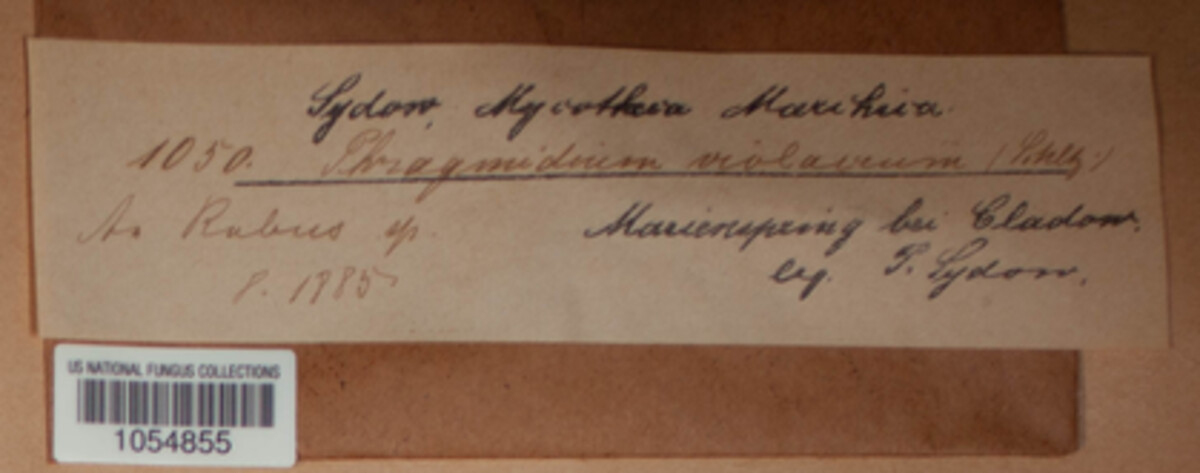 Sydow, Mycotheca Marchica.
1050. Phragmidium violaceum (Schltz.)
An Rubus sp. Marienspring bei Cladow.
8. 1885 leg. P. Sydow.
US NATIONAL FUNGUS COLLECTIONS
1054855